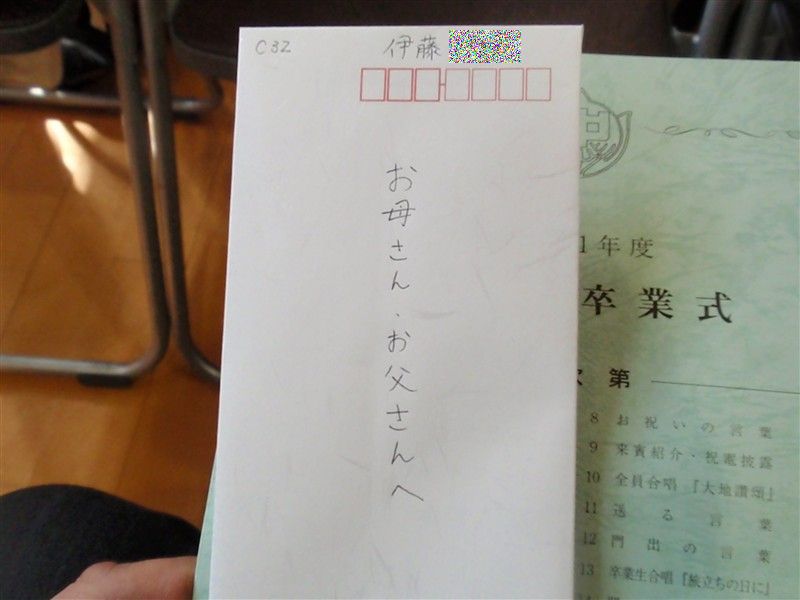 C32
伊藤
お母さん・お父さんへ
1年度
卒業式
次第
8 お祝いの言葉
9 来賓紹介・祝電披露
10 全員合唱『大地讃頌』
11 送る言葉
12 門出の言葉
13 卒業生合唱『旅立ちの日に』